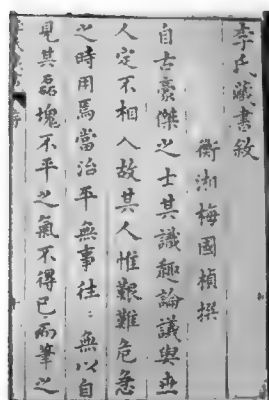 李氏藏書敘
衡湘梅國楨撰
自古豪傑之士其識趣論議與世
人定不相入故其人惟艱難危急
之時用焉當治平無事往：無以自
見其磊塊不平之氣不得已而筆之